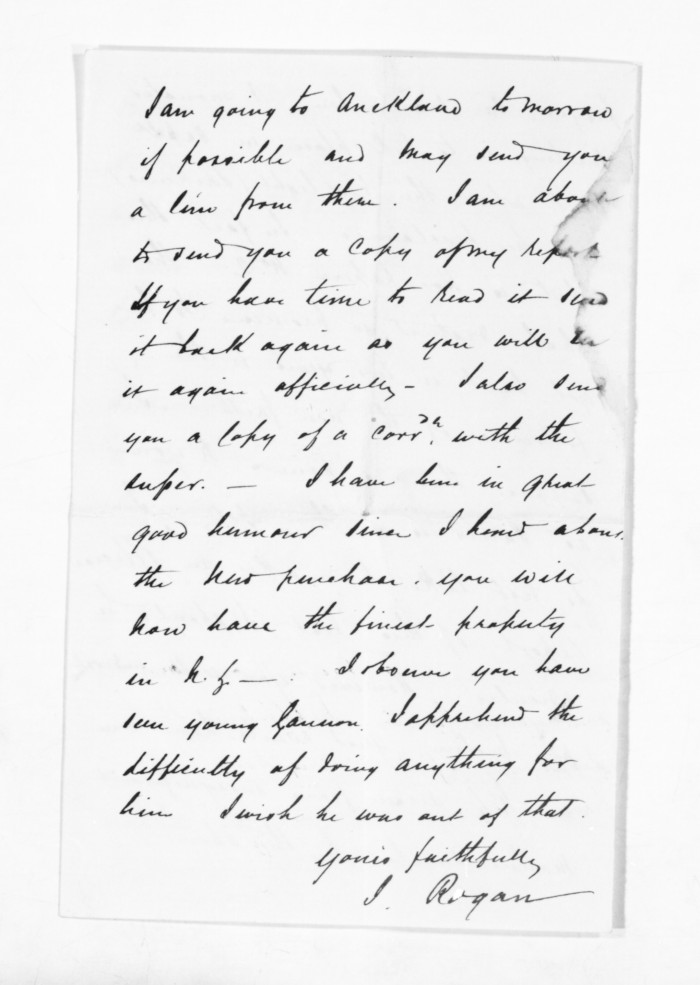 I am going to Auckland tomorrow
if possible and may send you
a line from there. I am about
to send you a copy of my report
If you have time to read it send
it back again as you will
it again officially - I also send
you a copy of a corrdn. with the
super. - I have been in great
good humour since I heard about
the new purchase. you will
now have the finest property
in N. Z - I observe you have
seen young Gannon. I apprehend the
difficulty of doing anything for
him I wish he was out of that.
Yours faithfully
J. Rogan